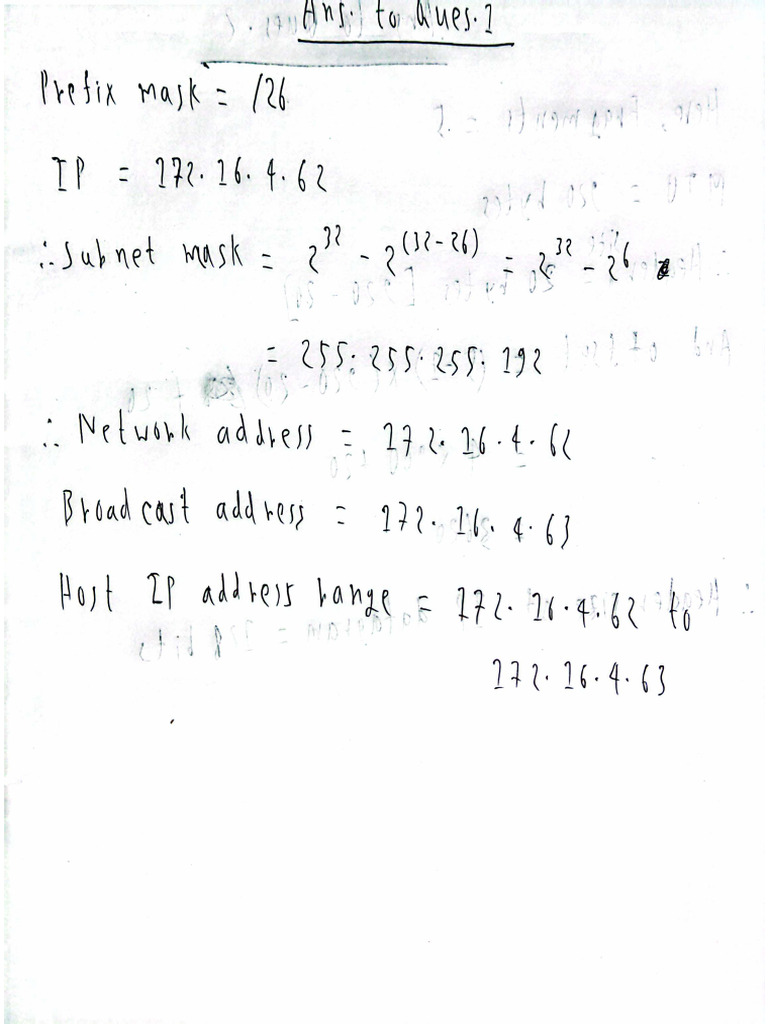 Ans. to Ques. 1
Prefix mask = /26
IP = 172.16.4.62
∴ Subnet mask = 2^32 - 2^(32-26) = 2^32 - 2^6
= 255.255.255.192
∴ Network address = 172.16.4.62
Broadcast address = 172.16.4.63
Host IP address range = 172.16.4.62 to
172.16.4.63